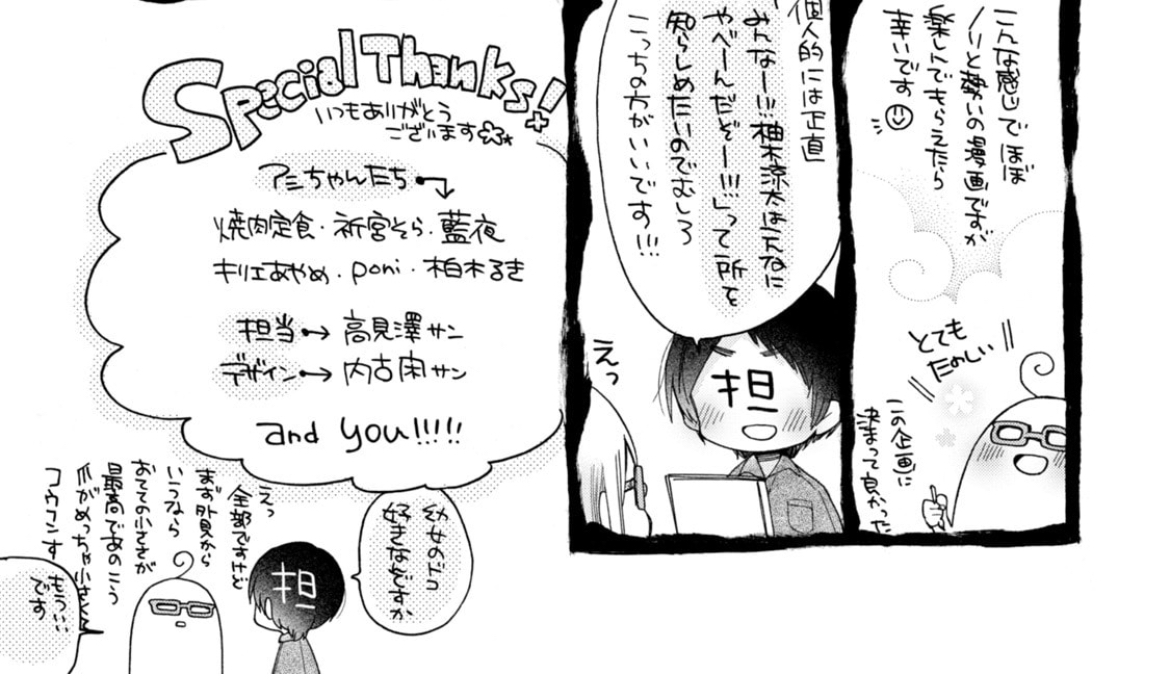 こんな感じでほぼ
ノリと勢いの漫画ですが
楽しんでもらえたら
幸いです
とても
たのしい
この企画に
決まって良かった
個人的には正直
みんなー!!!柚木涼太はこんなに
やべーんだぞー!!!」って所を
知らしめたいのでむしろ
こっちの方がいいです!!!
担
えっ
Special Thanks!
いつもありがとう
ございます
アミちゃんたち
焼肉定食・祈宮そら・藍夜
キリエあやめ・poni・柏木るき
担当→高見澤サン
デザイン→内古閑サン
and you!!!!!
幼女のドコ
好きなんですか
担
えっ
全部ですけど
まず外見から
いうなら
おてての小ささが
最高であのこう
爪がめっちゃ小さくて
コウフンす
もういい
です